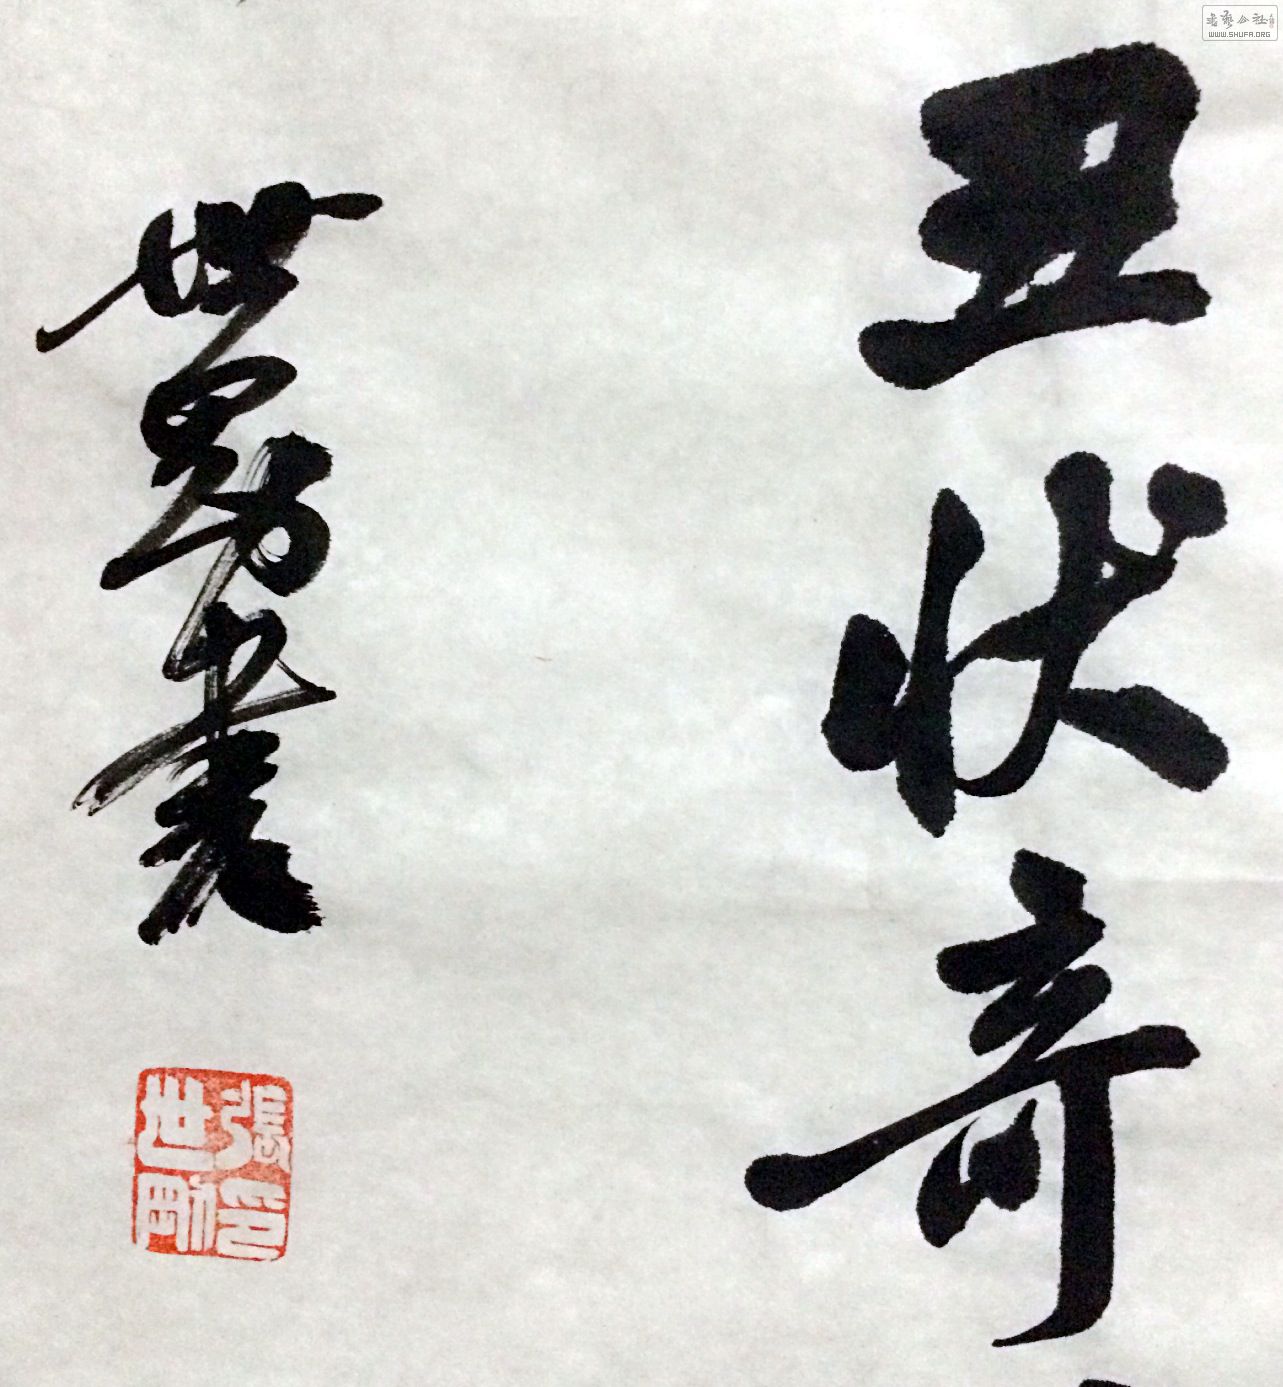 丑状奇
世男书
張世男印
书艺公社
WWW.SHUFA.ORG